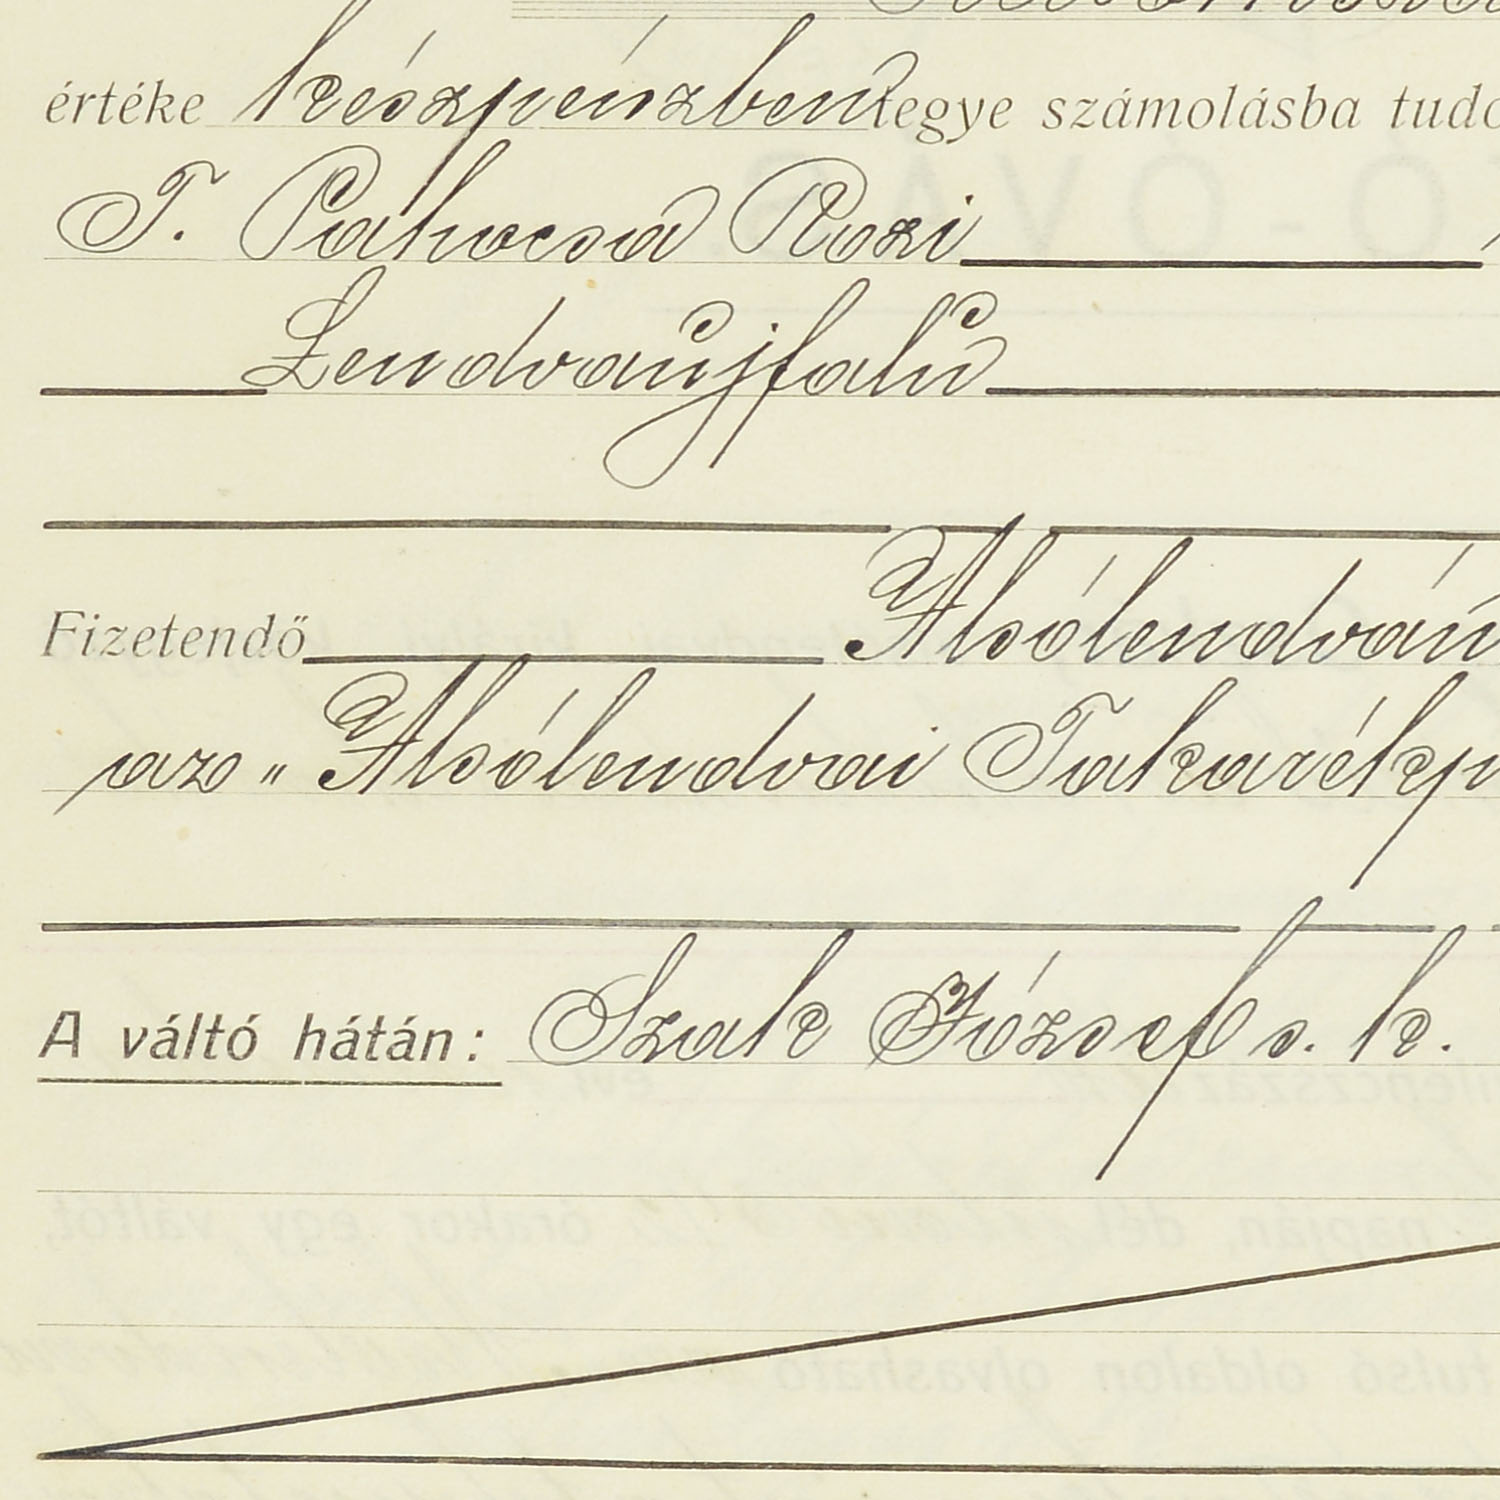 értéke készpénzben tegye számolásba tudo
T. Pahocsa Rozi
Lendvaujfalu
Fizetendő Alsólendván
az „Alsólendvai Takarékp
A váltó hátán: Szak József s. k.